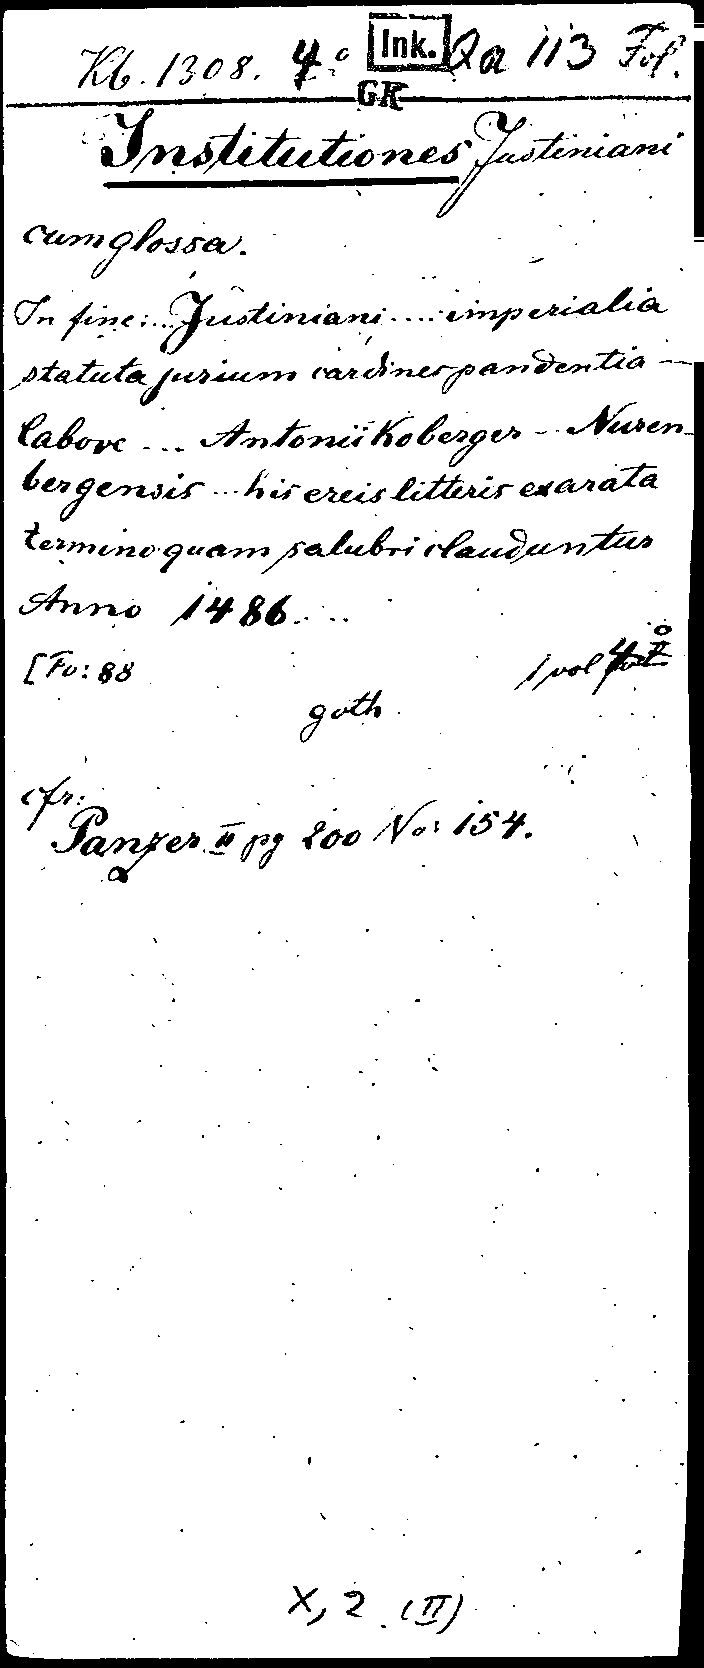 Kb. 1308. 4° Ink. Qa 113 Fol.
GK
Institutiones Justiniani
cum glossa.
In fine: .. Justiniani .... imperialia
statuta jurium cardines pandentia —
labore ... Antonii Koberger .. Nuren-
bergensis ... his ereis litteris exarata
termino quam salubri clauduntur
Anno 1486. ...
[Fo: 88 1 vol 4°
goth
cfr:
Panzer II pg 200 No: 154.
X, 2 (II)